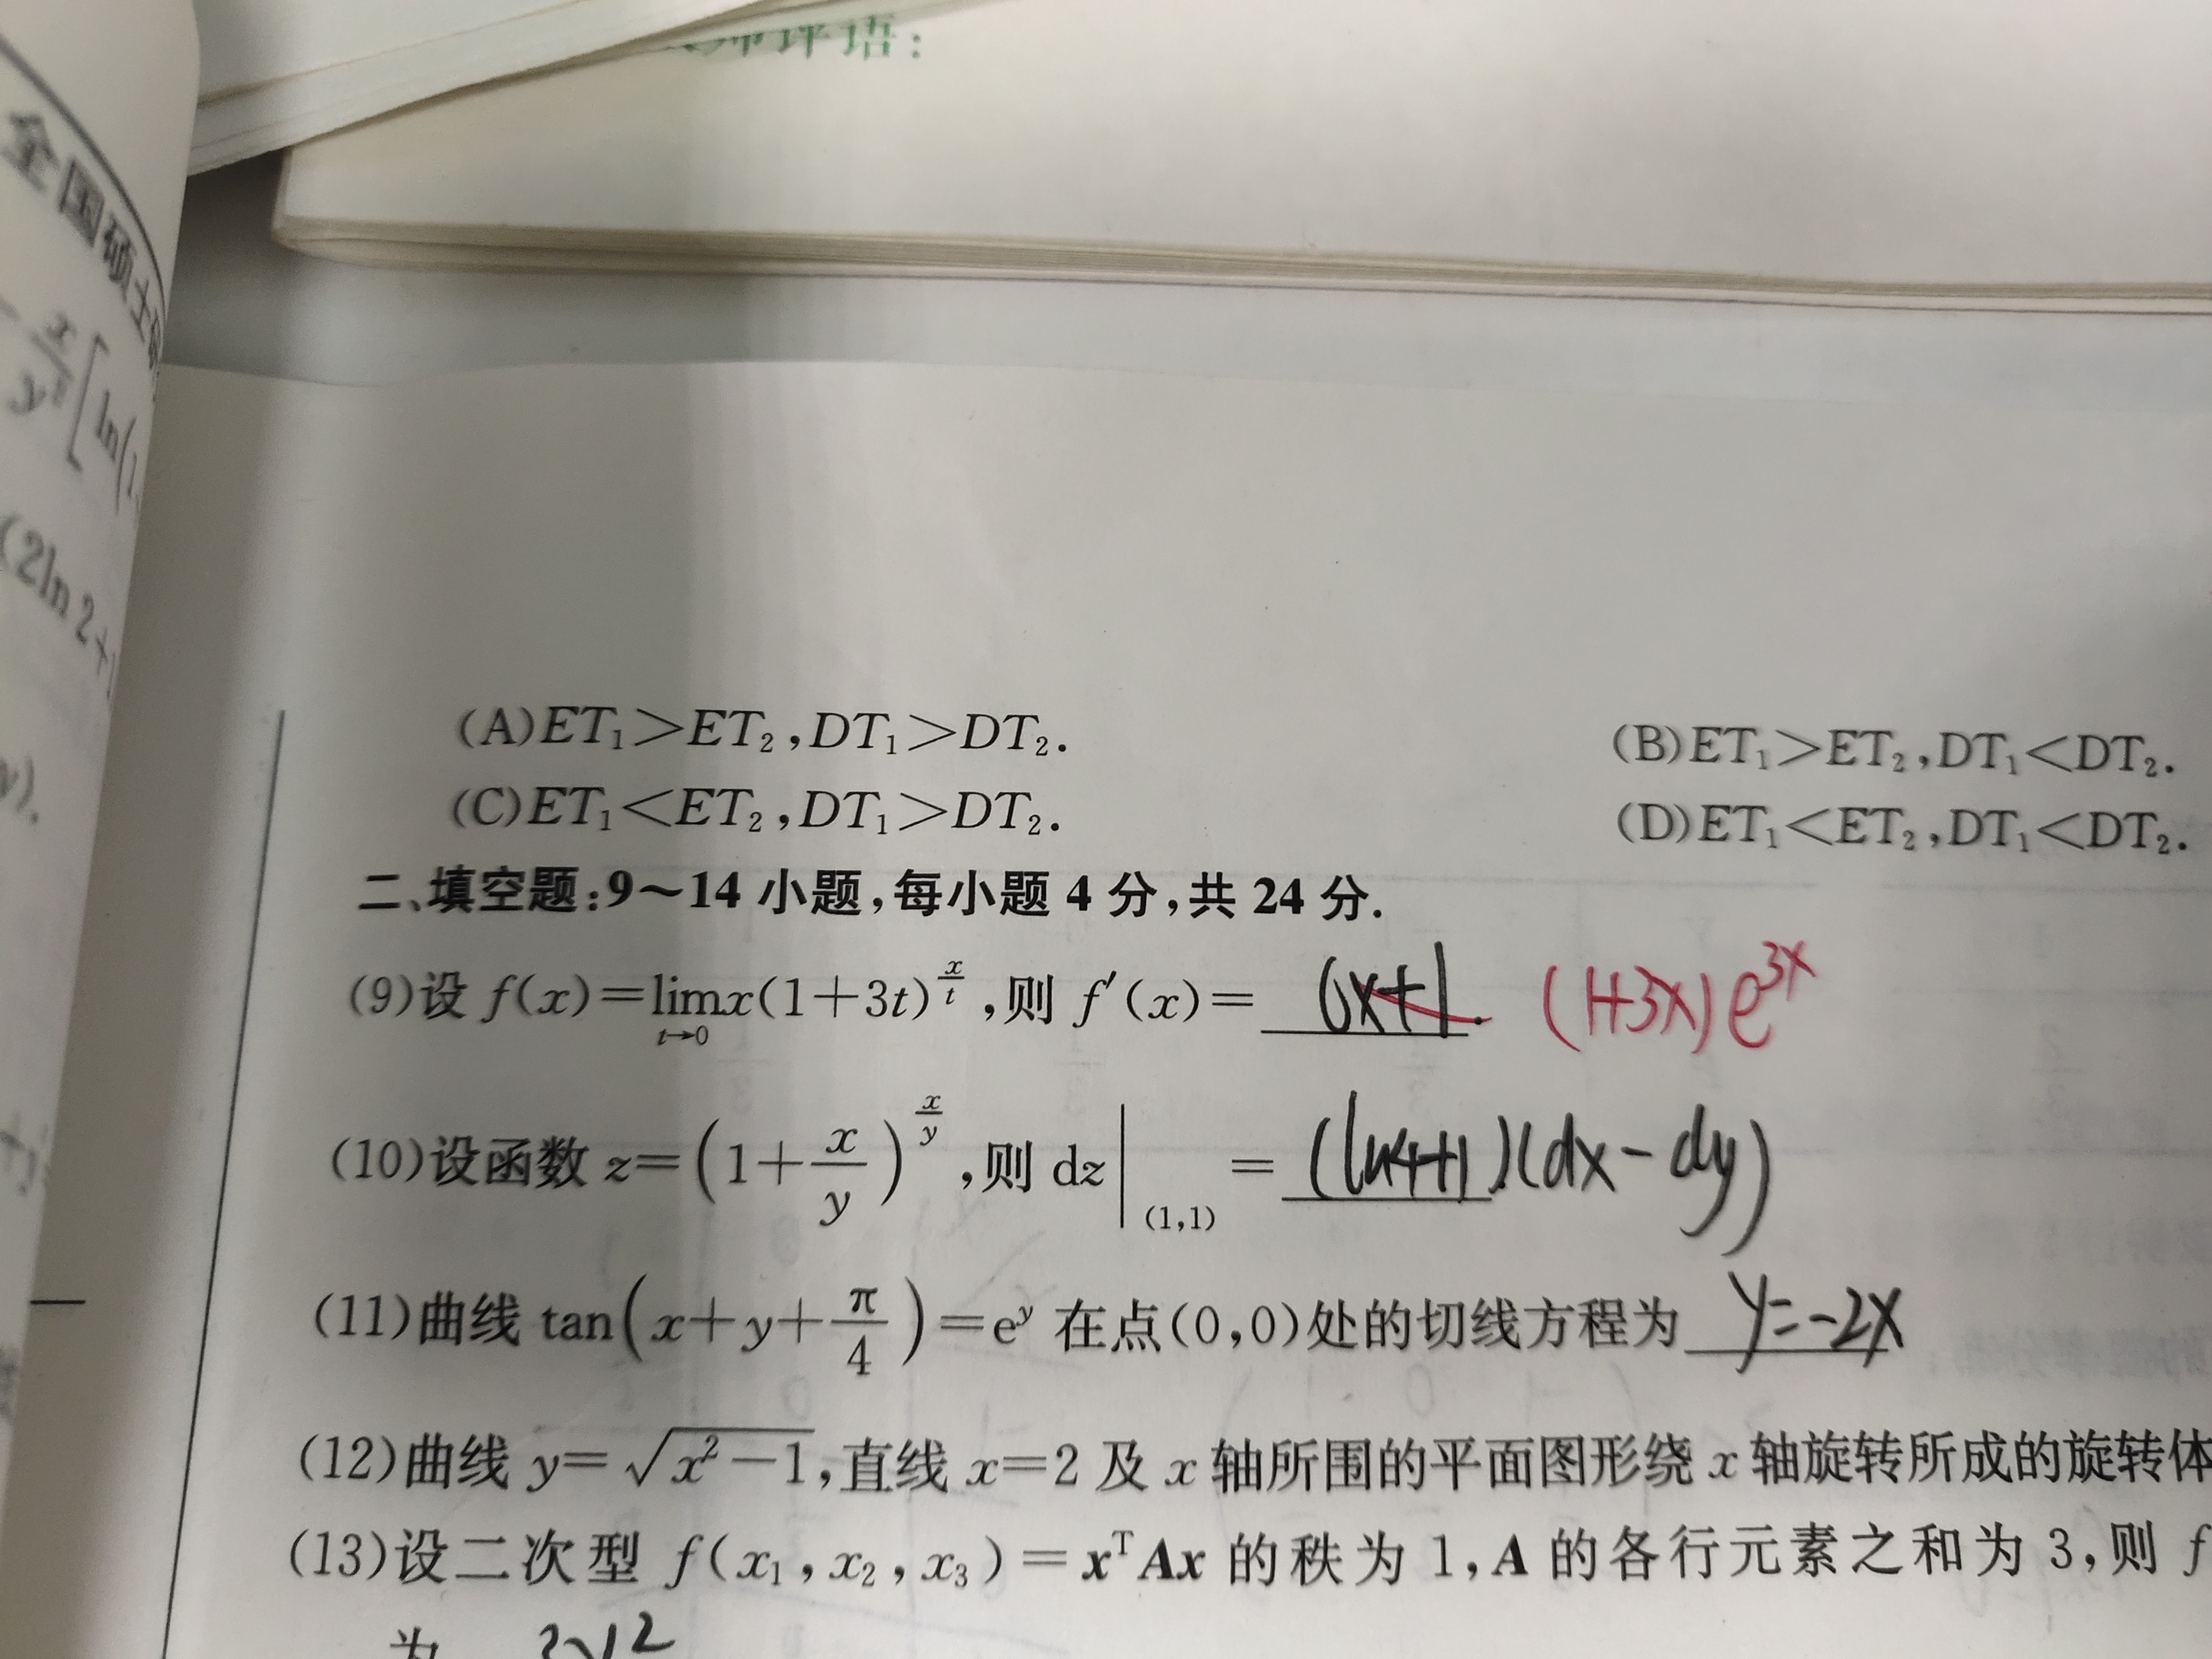 评语:
全国硕士
x/y² [ln(1
(2ln 2+
y).
(A)ET₁>ET₂,DT₁>DT₂.
(B)ET₁>ET₂,DT₁<DT₂.
(C)ET₁<ET₂,DT₁>DT₂.
(D)ET₁<ET₂,DT₁<DT₂.
二、填空题:9～14 小题,每小题 4 分,共 24 分.
(9)设 f(x)=lim_{t→0} x(1+3t)^{x/t},则 f′(x)= 6x+1. (1+3x)e^{3x}
(10)设函数 z=(1+x/y)^{x/y},则 dz|_(1,1) = (ln4+1)(dx-dy)
(11)曲线 tan(x+y+π/4)=e^y 在点(0,0)处的切线方程为 y=-2x
(12)曲线 y=√(x²-1),直线 x=2 及 x 轴所围的平面图形绕 x 轴旋转所成的旋转体
(13)设二次型 f(x₁,x₂,x₃)=xᵀAx 的秩为 1,A 的各行元素之和为 3,则 f
为